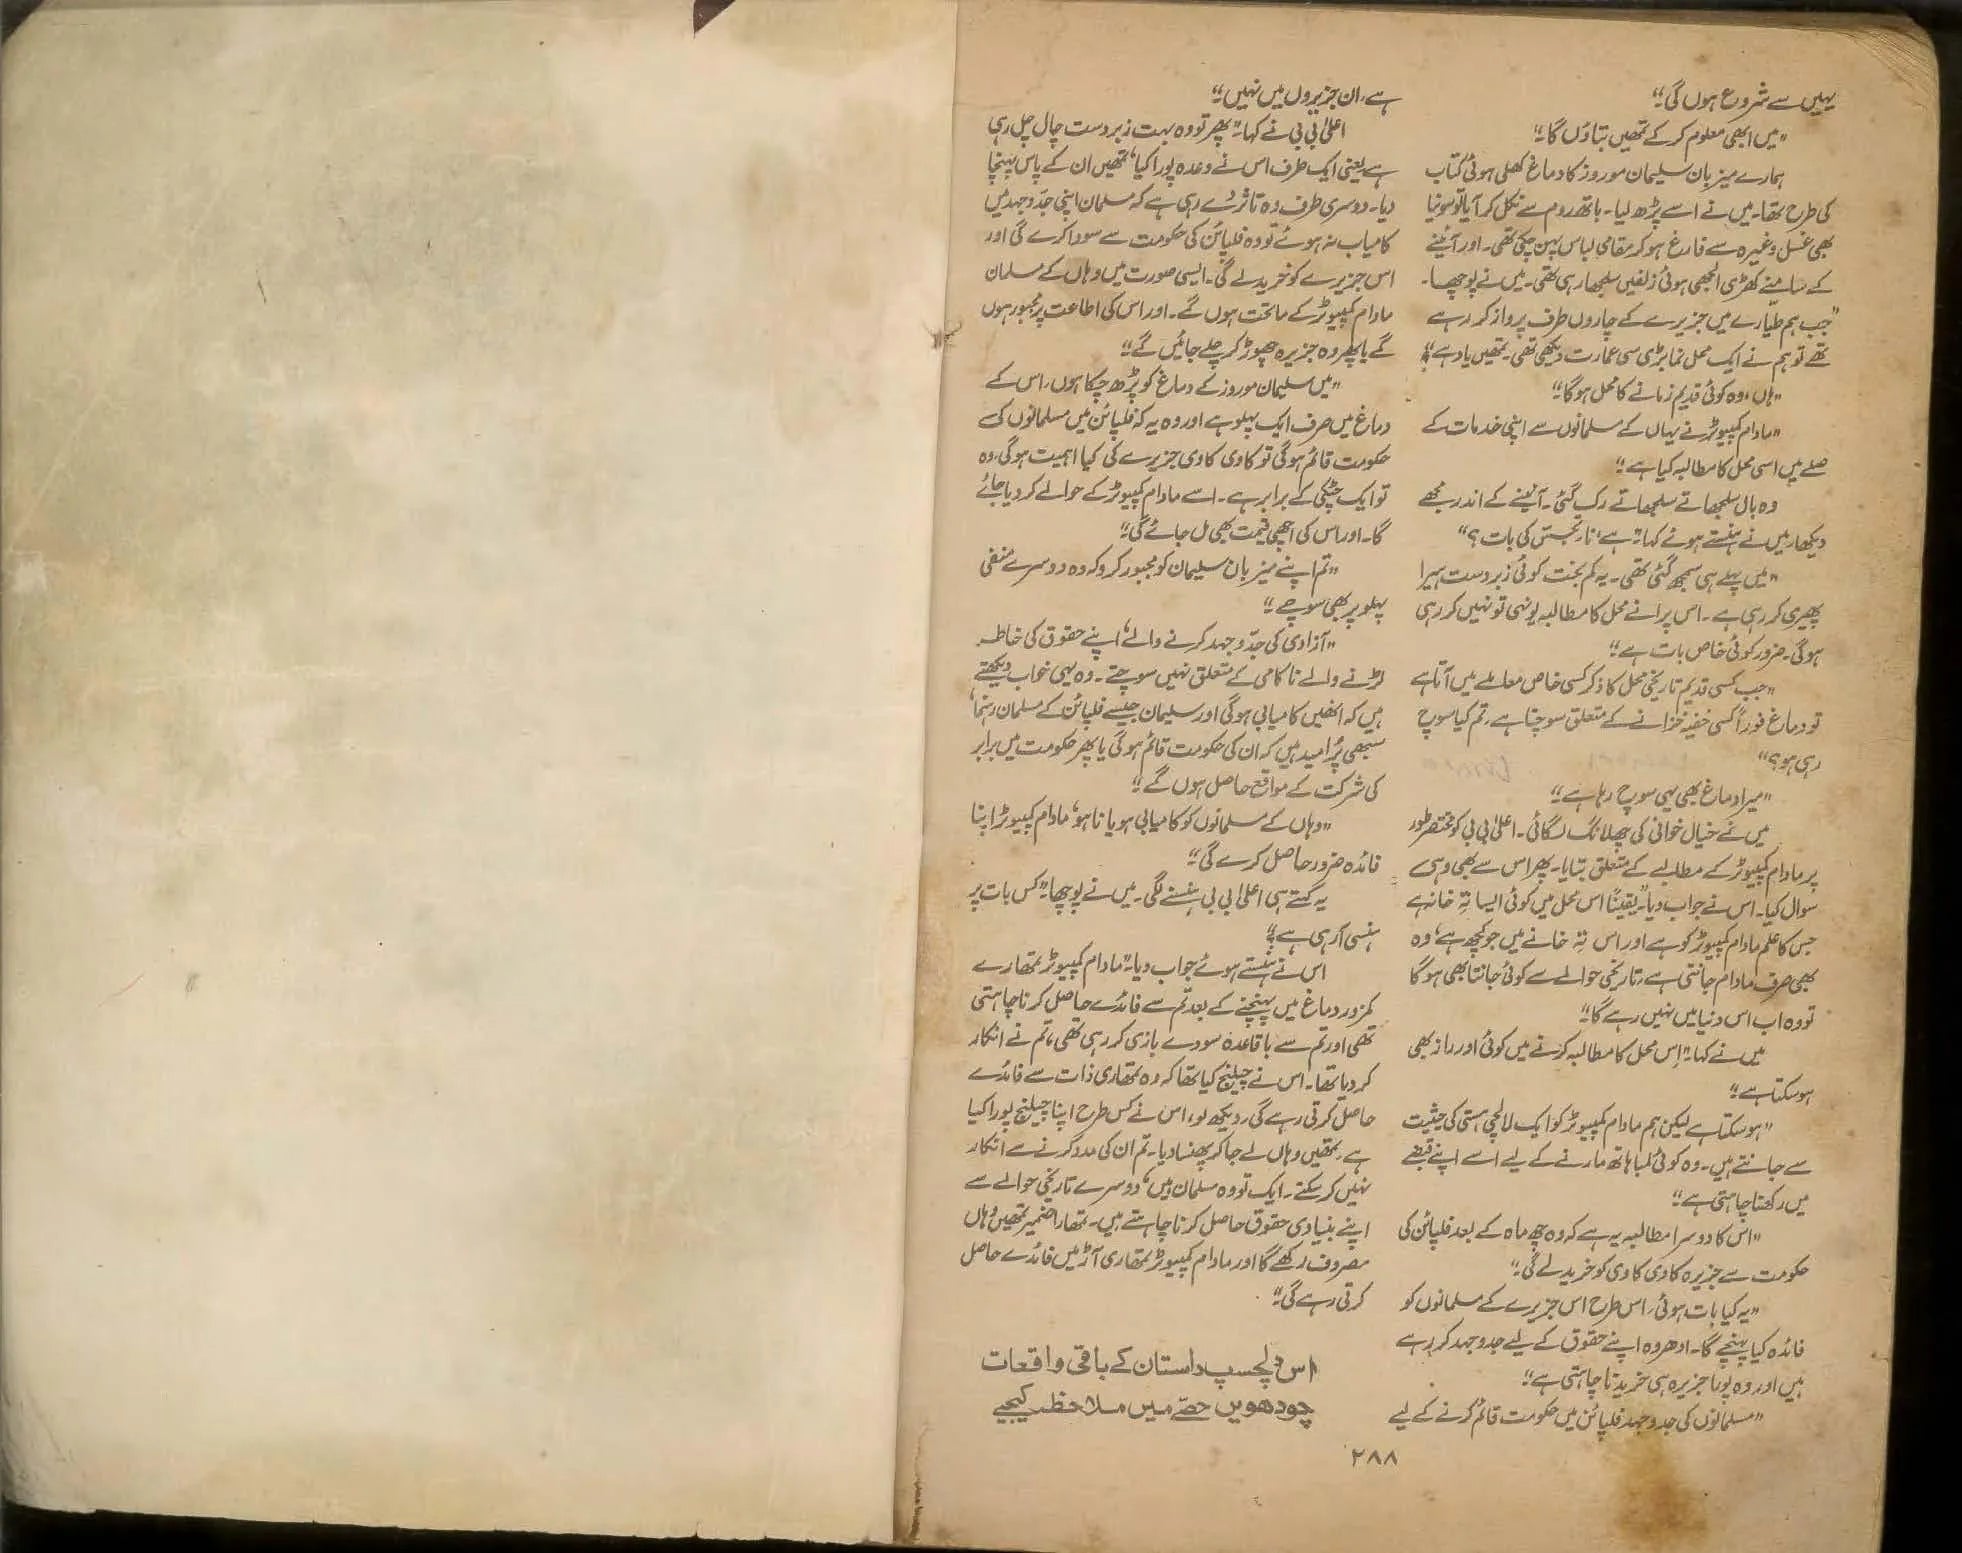 یہیں سے شروع ہوں گی؛“
”میں ابھی معلوم کر کے تمھیں بتاؤں گا؛“
ہمارے میزبان سلیمان موروز کا دماغ کھلی ہوئی کتاب
کی طرح تھا۔ میں نے اسے پڑھ لیا۔ باتھ روم سے نکل کر آیا تو سونیا
بھی غسل وغیرہ سے فارغ ہو کر مقامی لباس پہن چکی تھی۔ اور آئینے
کے سامنے کھڑی الجھی ہوئی زلفیں سلجھا رہی تھی۔ میں نے پوچھا۔
”جب ہم طیّارے میں جزیرے کے چاروں طرف پرواز کر رہے
تھے تو ہم نے ایک محل نما بڑی سی عمارت دیکھی تھی۔ تمھیں یاد ہے؟“
”ہاں، وہ کوئی قدیم زمانے کا محل ہوگا؛“
”مادام کمپیوٹر نے یہاں کے مسلمانوں سے اپنی خدمات کے
صلے میں اسی محل کا مطالبہ کیا ہے؛“
وہ بال سلجھاتے سلجھاتے رک گئی۔ آئینے کے اندر مجھے
دیکھا، میں نے ہنستے ہوئے کہا ”ہے نا، تجسّس کی بات؟“
”میں پہلے ہی سمجھ گئی تھی۔ یہ کم بخت کوئی زبردست ہیرا
پھیری کر رہی ہے۔ اس پرانے محل کا مطالبہ یونہی تو نہیں کر رہی
ہوگی۔ ضرور کوئی خاص بات ہے؛“
”جب کسی قدیم تاریخی محل کا ذکر کسی خاص معاملے میں آتا ہے
تو دماغ فوراً کسی خفیہ خزانے کے متعلق سوچتا ہے، تم کیا سوچ
رہی ہو؟“
”میرا دماغ بھی یہی سوچ رہا ہے؛“
میں نے خیال خوانی کی چھلانگ لگائی۔ اعلیٰ بی بی کو مختصر طور
پر مادام کمپیوٹر کے مطالبے کے متعلق بتایا۔ پھر اس سے بھی وہی
سوال کیا۔ اس نے جواب دیا ”یقیناً اس محل میں کوئی ایسا تہ خانہ ہے
جس کا علم مادام کمپیوٹر کو ہے اور اس تہ خانے میں جو کچھ ہے، وہ
بھی صرف مادام جانتی ہے، تاریخی حوالے سے کوئی جانتا بھی ہوگا
تو وہ اب اس دنیا میں نہیں رہے گا؛“
میں نے کہا ”اس محل کا مطالبہ کرنے میں کوئی اور راز بھی
ہو سکتا ہے؛“
”ہو سکتا ہے لیکن ہم مادام کمپیوٹر کو ایک لالچی ہستی کی حیثیت
سے جانتے ہیں۔ وہ کوئی لمبا ہاتھ مارنے کے لیے اسے اپنے قبضے
میں رکھنا چاہتی ہے؛“
”اس کا دوسرا مطالبہ یہ ہے کہ وہ چھ ماہ کے بعد فلپائن کی
حکومت سے جزیرہ کاوی کاوی کو خرید لے گی؛“
”یہ کیا بات ہوئی، اس طرح اس جزیرے کے مسلمانوں کو
فائدہ کیا پہنچے گا۔ ادھر وہ اپنے حقوق کے لیے جدوجہد کر رہے
ہیں اور وہ پورا جزیرہ ہی خریدنا چاہتی ہے؛“
”مسلمانوں کی جدوجہد فلپائن میں حکومت قائم کرنے کے لیے
ہے، ان جزیروں میں نہیں؛“
اعلیٰ بی بی نے کہا ”پھر تو وہ بہت زبردست چال چل رہی
ہے یعنی ایک طرف اس نے وعدہ پورا کیا، تمھیں ان کے پاس پہنچا
دیا۔ دوسری طرف وہ تاثر دے رہی ہے کہ مسلمان اپنی جدّوجہد میں
کامیاب نہ ہوئے تو وہ فلپائن کی حکومت سے سودا کرے گی اور
اس جزیرے کو خرید لے گی۔ ایسی صورت میں وہاں کے مسلمان
مادام کمپیوٹر کے ماتحت ہوں گے۔ اور اس کی اطاعت پر مجبور ہوں
گے یا پھر وہ جزیرہ چھوڑ کر چلے جائیں گے؛“
”میں سلیمان موروز کے دماغ کو پڑھ چکا ہوں، اس کے
دماغ میں صرف ایک پہلو ہے اور وہ یہ کہ فلپائن میں مسلمانوں کی
حکومت قائم ہوگی تو کاوی کاوی جزیرے کی کیا اہمیت ہوگی، وہ
تو ایک چٹکی کے برابر ہے۔ اسے مادام کمپیوٹر کے حوالے کر دیا جائے
گا۔ اور اس کی اچھی قیمت بھی مل جائے گی؛“
”تم اپنے میزبان سلیمان کو مجبور کرو کہ وہ دوسرے منفی
پہلو پر بھی سوچے؛“
”آزادی کی جدّوجہد کرنے والے، اپنے حقوق کی خاطر
لڑنے والے ناکامی کے متعلق نہیں سوچتے۔ وہ یہی خواب دیکھتے
ہیں کہ انھیں کامیابی ہوگی اور سلیمان جیسے فلپائن کے مسلمان رہنما،
سبھی پُرامید ہیں کہ ان کی حکومت قائم ہوگی یا پھر حکومت میں برابر
کی شرکت کے مواقع حاصل ہوں گے؛“
”وہاں کے مسلمانوں کو کامیابی ہو یا نا ہو، مادام کمپیوٹر اپنا
فائدہ ضرور حاصل کرے گی؛“
یہ کہتے ہی اعلیٰ بی بی ہنسنے لگی۔ میں نے پوچھا ”کس بات پر
ہنسی آ رہی ہے؟“
اس نے ہنستے ہوئے جواب دیا ”مادام کمپیوٹر تمھارے
کمزور دماغ میں پہنچنے کے بعد تم سے فائدے حاصل کرنا چاہتی
تھی اور تم سے باقاعدہ سودے بازی کر رہی تھی، تم نے انکار
کر دیا تھا۔ اس نے چیلنج کیا تھا کہ وہ تمھاری ذات سے فائدے
حاصل کرتی رہے گی، دیکھ لو، اس نے کس طرح اپنا چیلنج پورا کیا
ہے، تمھیں وہاں لے جا کر پھنسا دیا۔ تم ان کی مدد کرنے سے انکار
نہیں کر سکتے۔ ایک تو وہ مسلمان ہیں، دوسرے تاریخی حوالے سے
اپنے بنیادی حقوق حاصل کرنا چاہتے ہیں۔ تمھارا ضمیر تمھیں وہاں
مصروف رکھے گا اور مادام کمپیوٹر تمھاری آڑ میں فائدے حاصل
کرتی رہے گی؛“
اس دلچسپ داستان کے باقی واقعات
چودھویں حصّے میں ملاحظہ کیجیے
۲۸۸